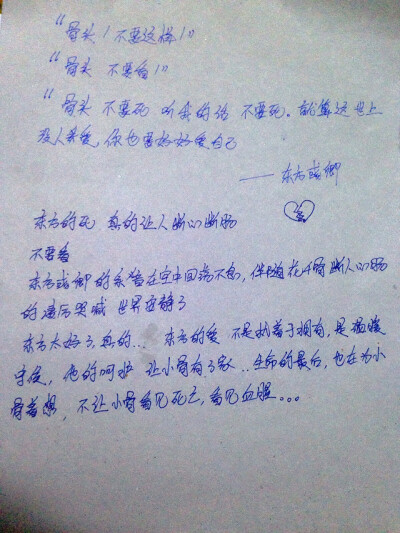 “骨头！不要这样！”
“骨头 不要看！”
“骨头 不要死 听我的话 不要死。就算这世上
没人来爱，你也要好好爱自己
——东方彧卿
东方的死 真的让人断心断肠
不要看
东方彧卿的余音在空中回荡不息，伴随花千骨断人心肠
的凄厉哭喊 世界安静了
东方太好了，真的... 东方的爱 不是执着于拥有，是温暖
守候，他的呵护 让小骨有了家..生命的最后，也在为小
骨着想，不让小骨看见死亡，看见血腥。。。